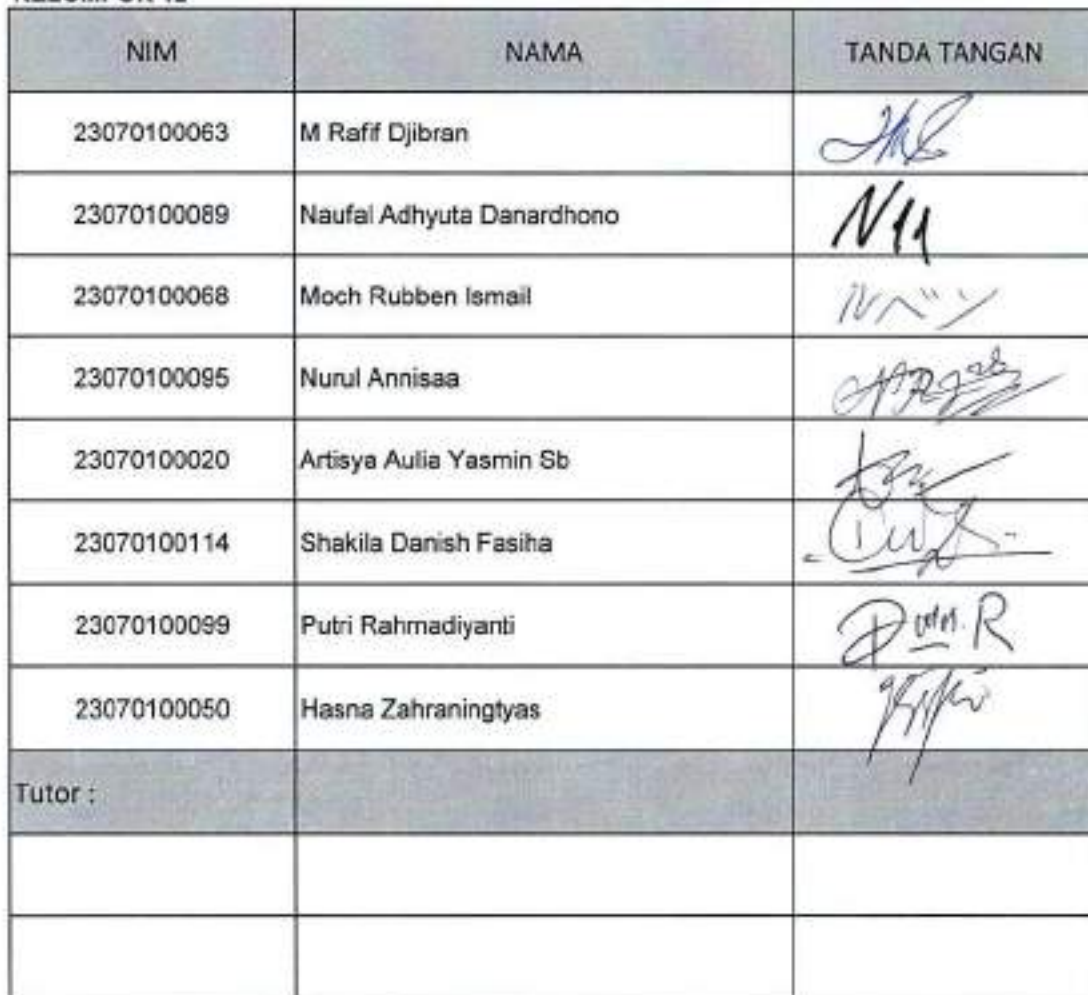 NIM NAMA TANDA TANGAN
23070100063 M Rafif Djibran
23070100089 Naufal Adhyuta Danardhono
23070100068 Moch Rubben Ismail ルベン
23070100095 Nurul Annisaa
23070100020 Artisya Aulia Yasmin Sb
23070100114 Shakila Danish Fasiha
23070100099 Putri Rahmadiyanti
23070100050 Hasna Zahraningtyas
Tutor :